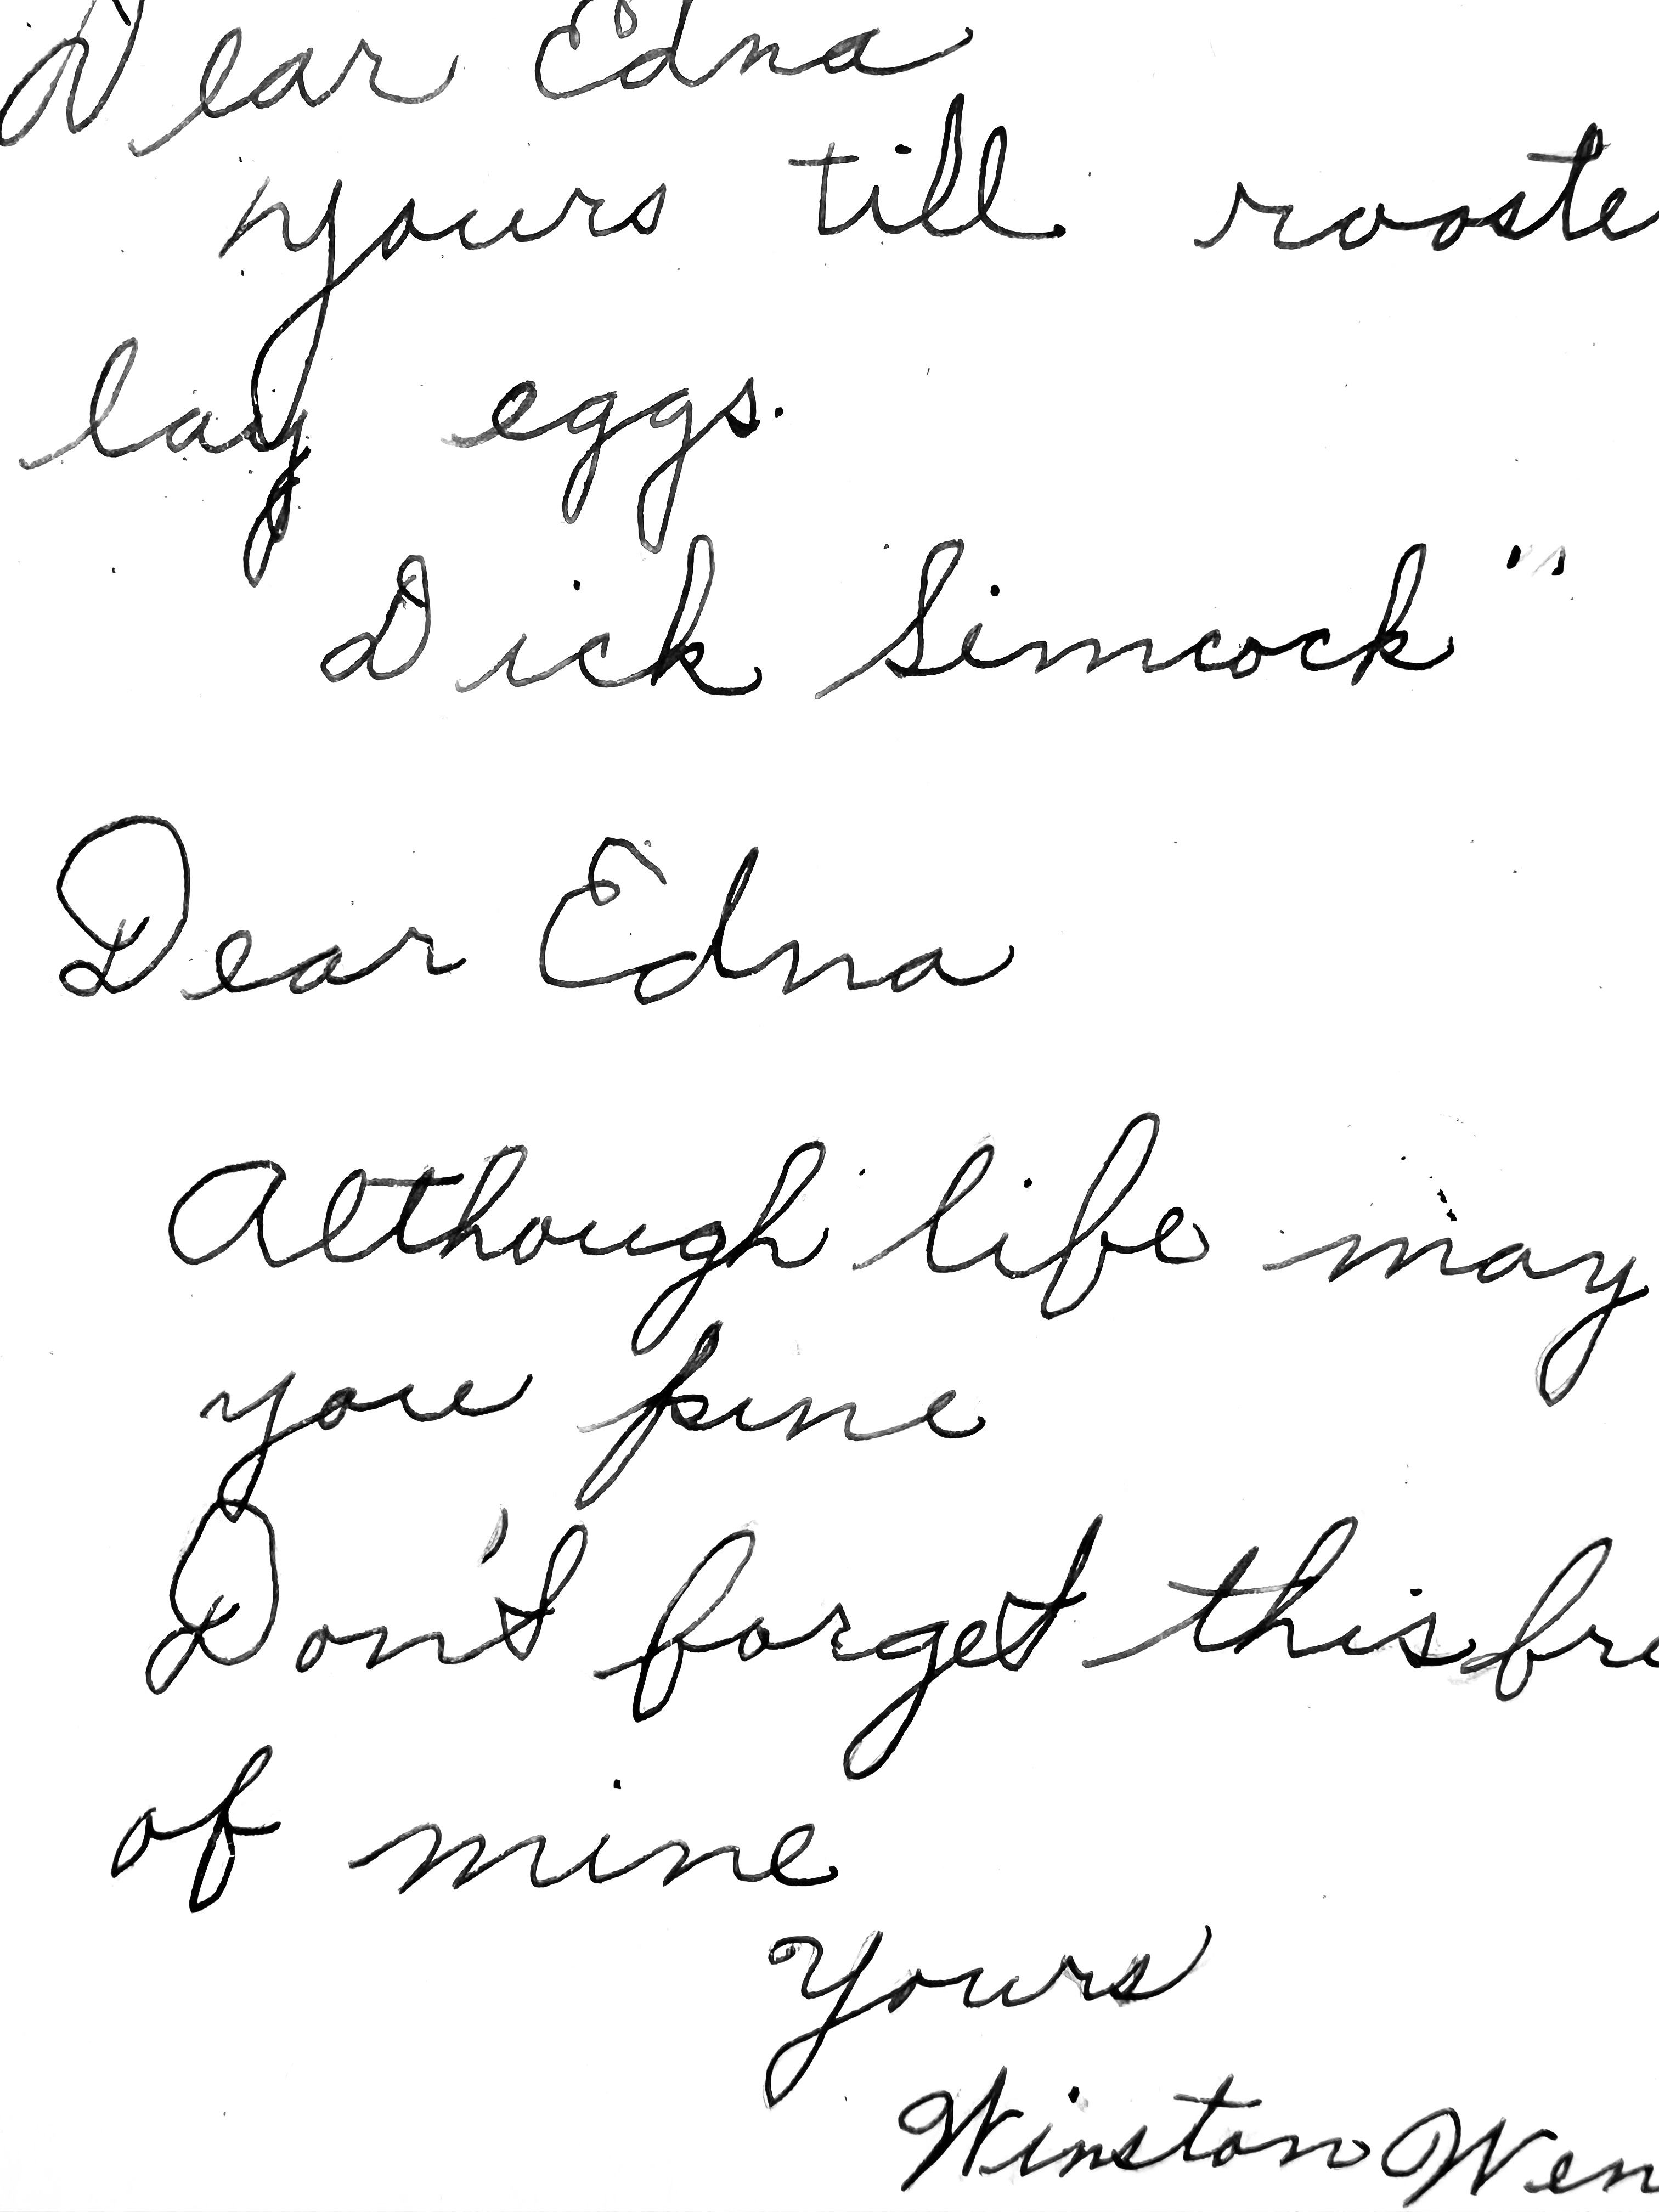 Dear Edna
yours till rooste
lay eggs.
Dick Simcock"
Dear Edna
Although life may
you pine
Don't forget this fre
of mine
Yours
Winston Wen